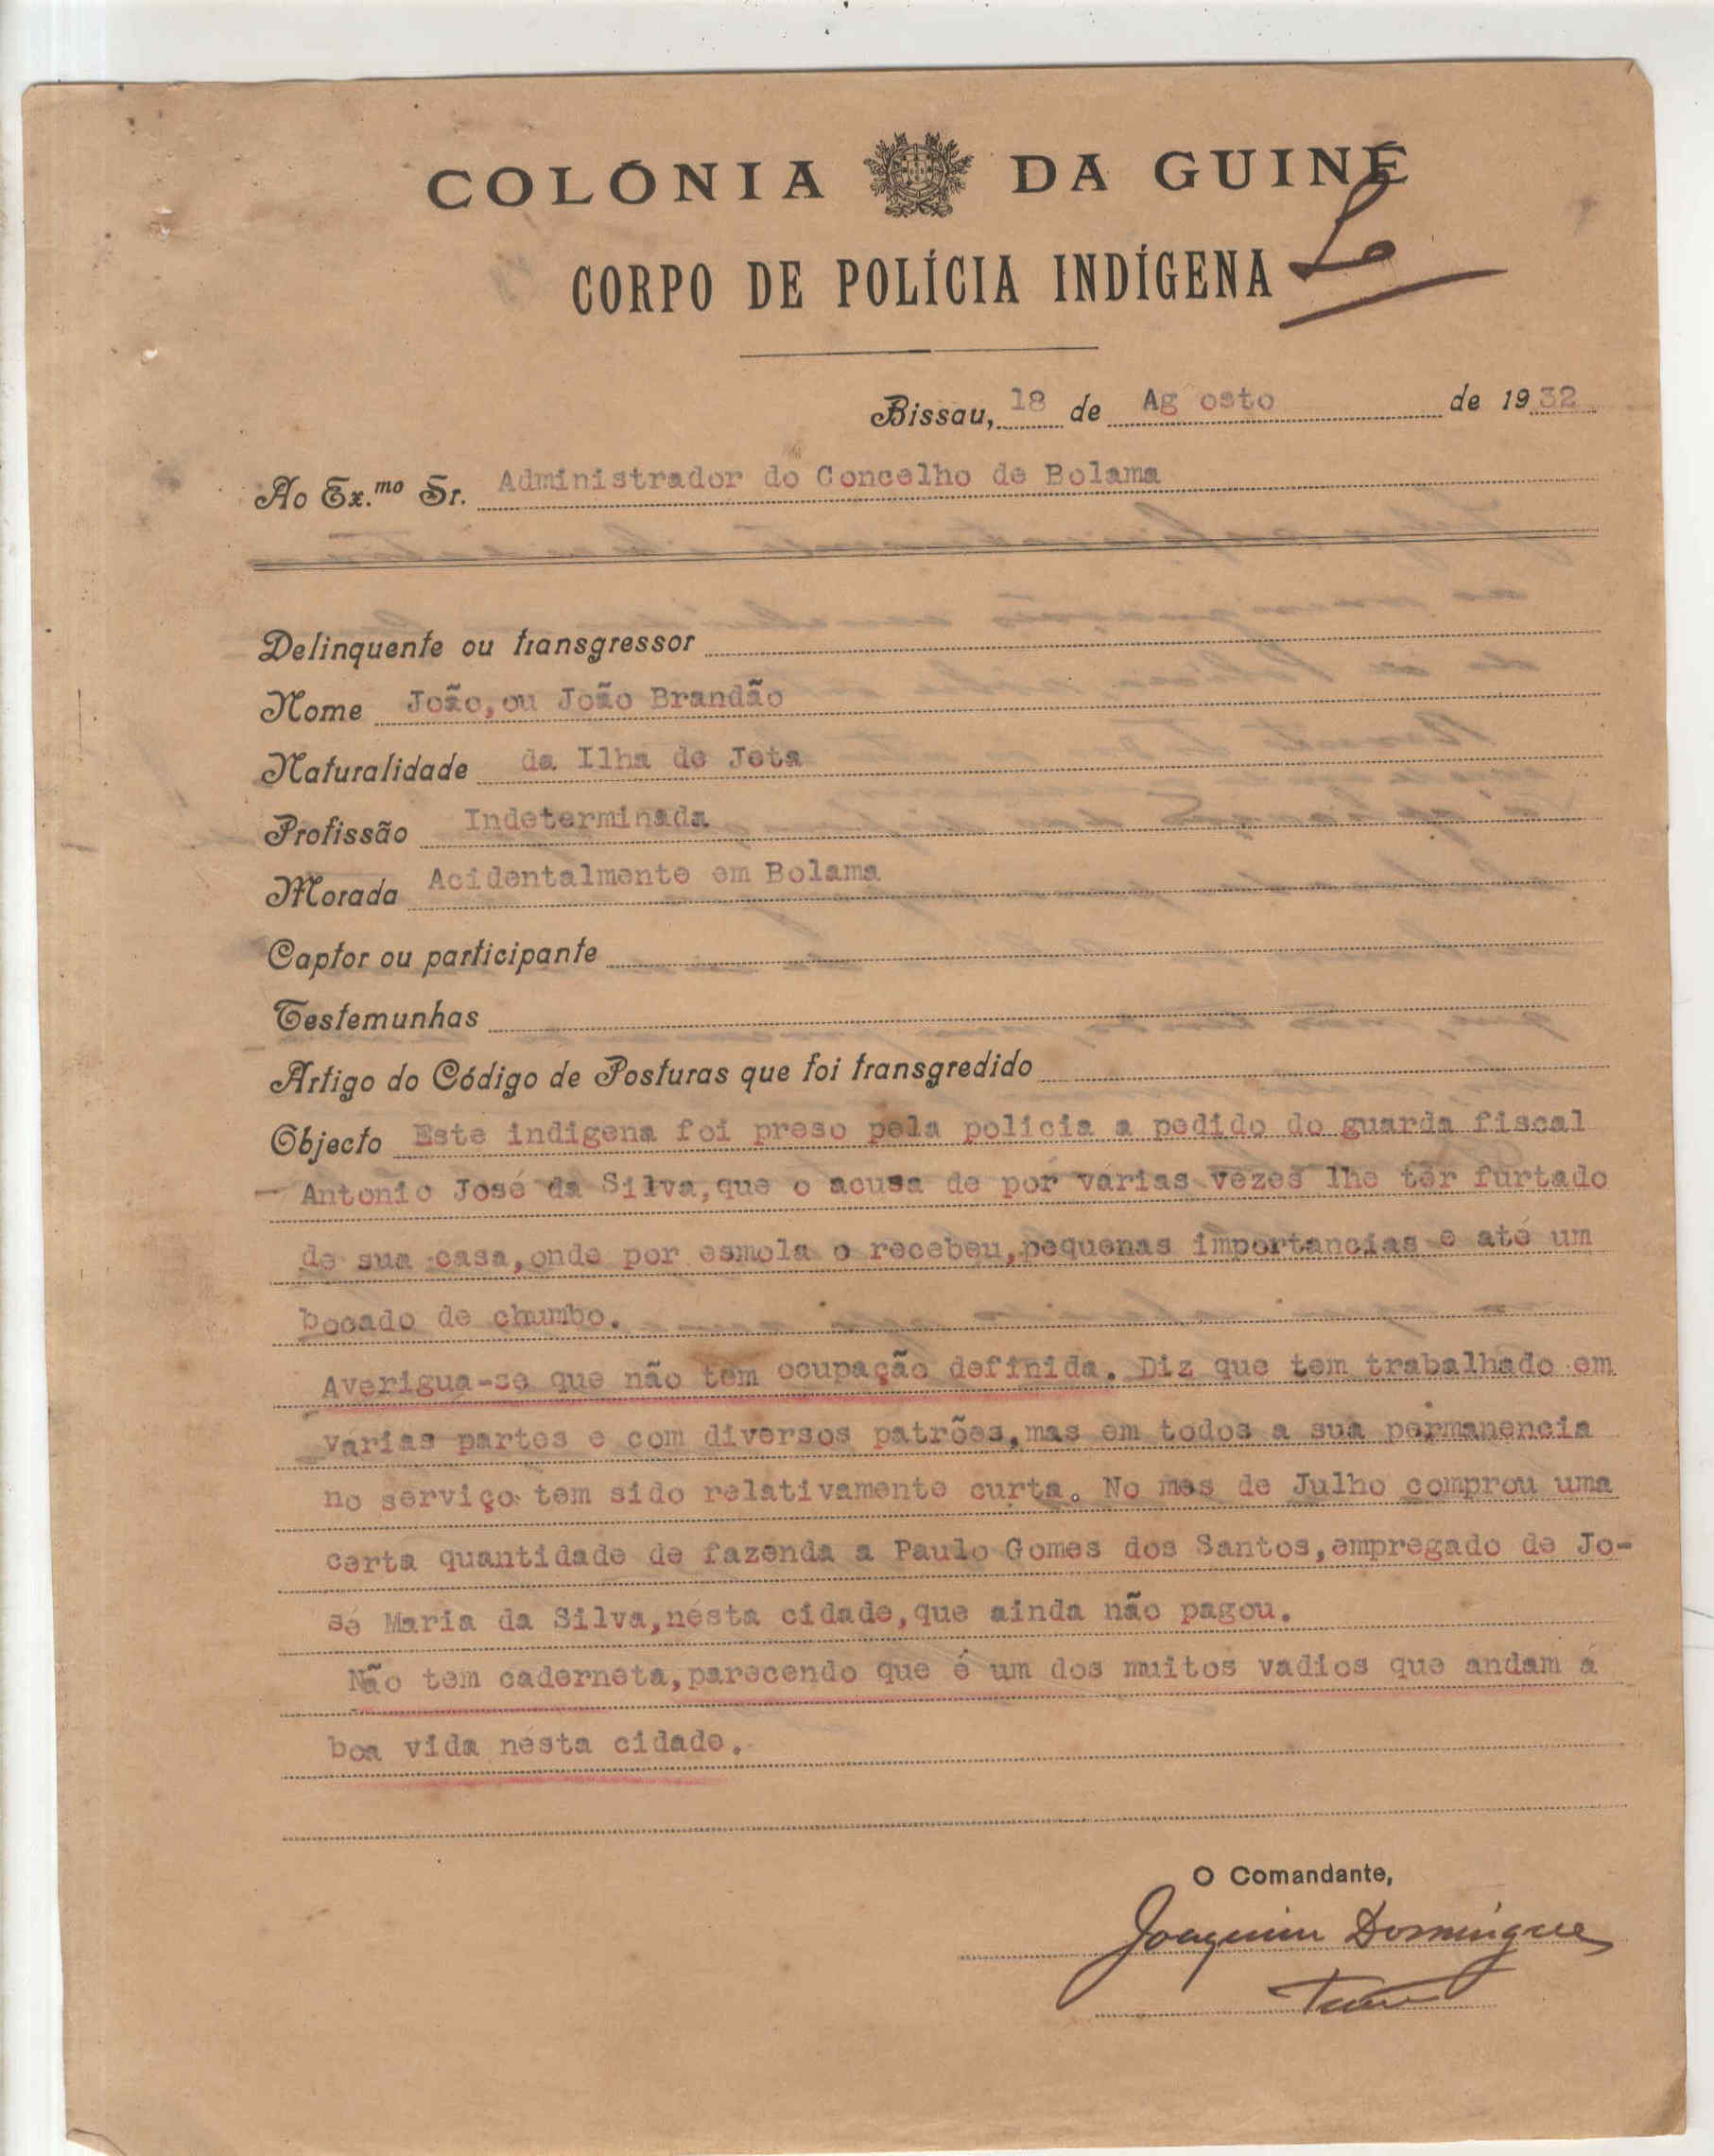 COLÓNIA DA GUINÉ
CORPO DE POLÍCIA INDÍGENA
Bissau, 18 de Ag osto de 1932
Ao Ex.mo Sr. Administrador do Concelho de Bolama
Delinquente ou transgressor
Nome João, ou João Brandão
Naturalidade da Ilha de Jeta
Profissão Indeterminada
Morada Acidentalmente em Bolama
Captor ou participante
Testemunhas
Artigo do Código de Posturas que foi transgredido
Objecto Este indigena foi preso pela policia a pedido do guarda fiscal
Antonio José da Silva, que o acusa de por várias vezes lhe têr furtado
de sua casa, onde por esmola o recebeu, pequenas importancias e até um
bocado de chumbo.
Averigua-se que não tem ocupação definida. Diz que tem trabalhado em
várias partes e com diversos patrões, mas em todos a sua permanencia
no serviço tem sido relativamente curta. No mes de Julho comprou uma
certa quantidade de fazenda a Paulo Gomes dos Santos, empregado de Jo-
sé Maria da Silva, nésta cidade, que ainda não pagou.
Não tem caderneta, parecendo que é um dos muitos vadios que andam á
boa vida nésta cidade.
O Comandante,
Joaquim Domingues